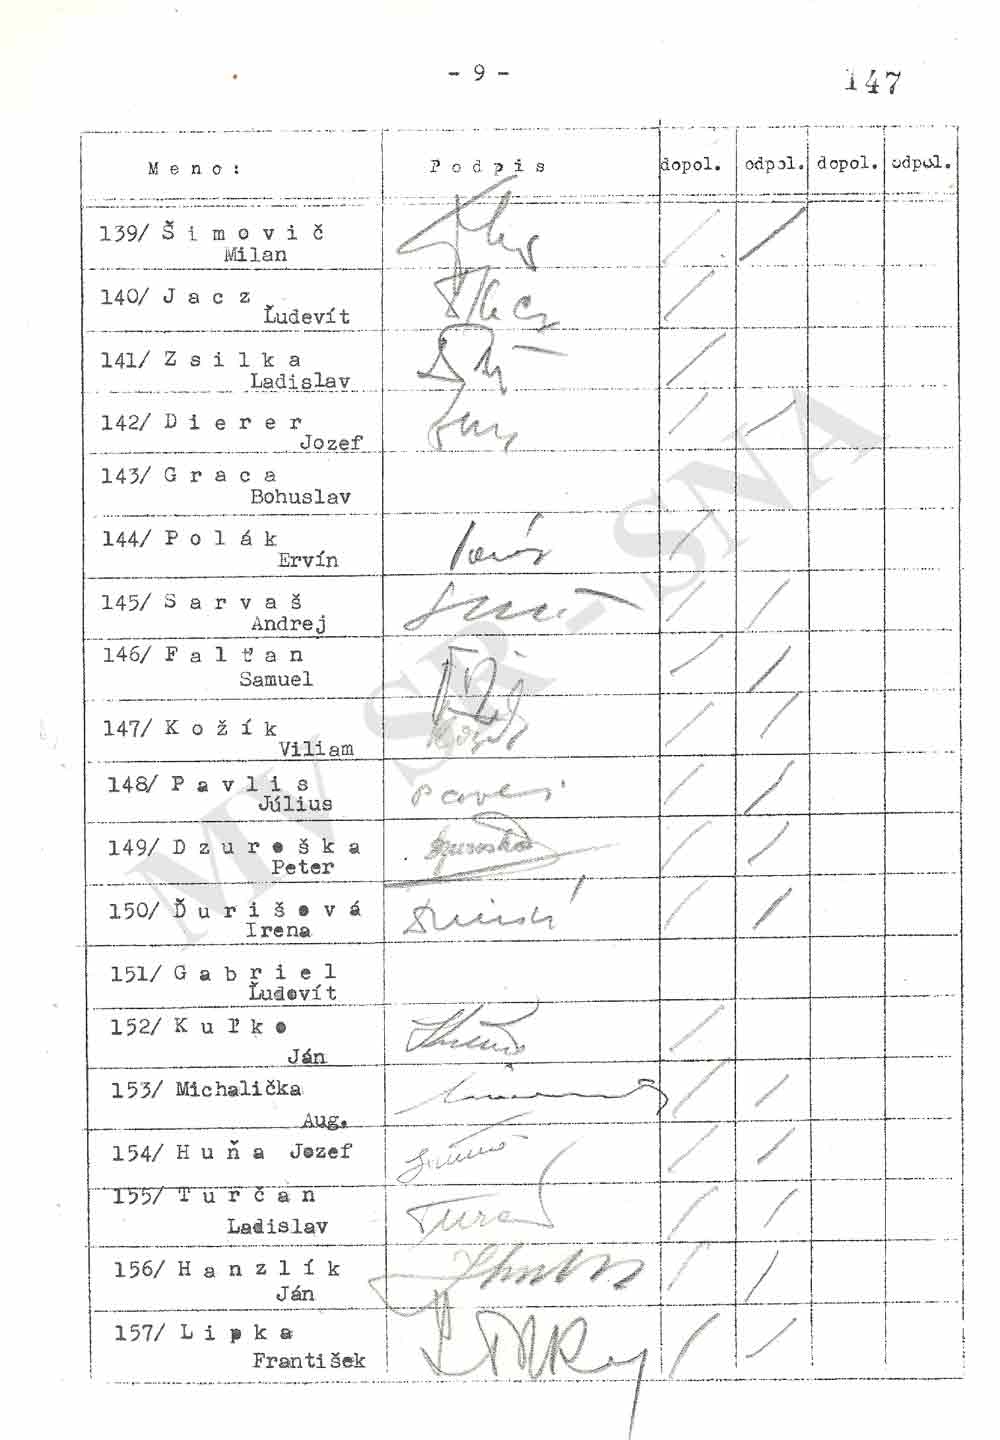 - 9 -
147
Meno: Podpis dopol. odpol. dopol. odpol.
139/ Šimovič
Milan
140/ Jacz
Ľudevít
141/ Zsilka
Ladislav
142/ Dierer
Jozef
143/ Graca
Bohuslav
144/ Polák
Ervín
145/ Sarvaš
Andrej
146/ Falťan
Samuel
147/ Kožík
Viliam
148/ Pavlis
Július
149/ Dzureška
Peter
150/ Ďurišová
Irena
151/ Gabriel
Ľudovít
152/ Kuľke
Ján
153/ Michalička
Aug.
154/ Huňa Jozef
155/ Turčan
Ladislav
156/ Hanzlík
Ján
157/ Lipka
František
MV SR - SNA